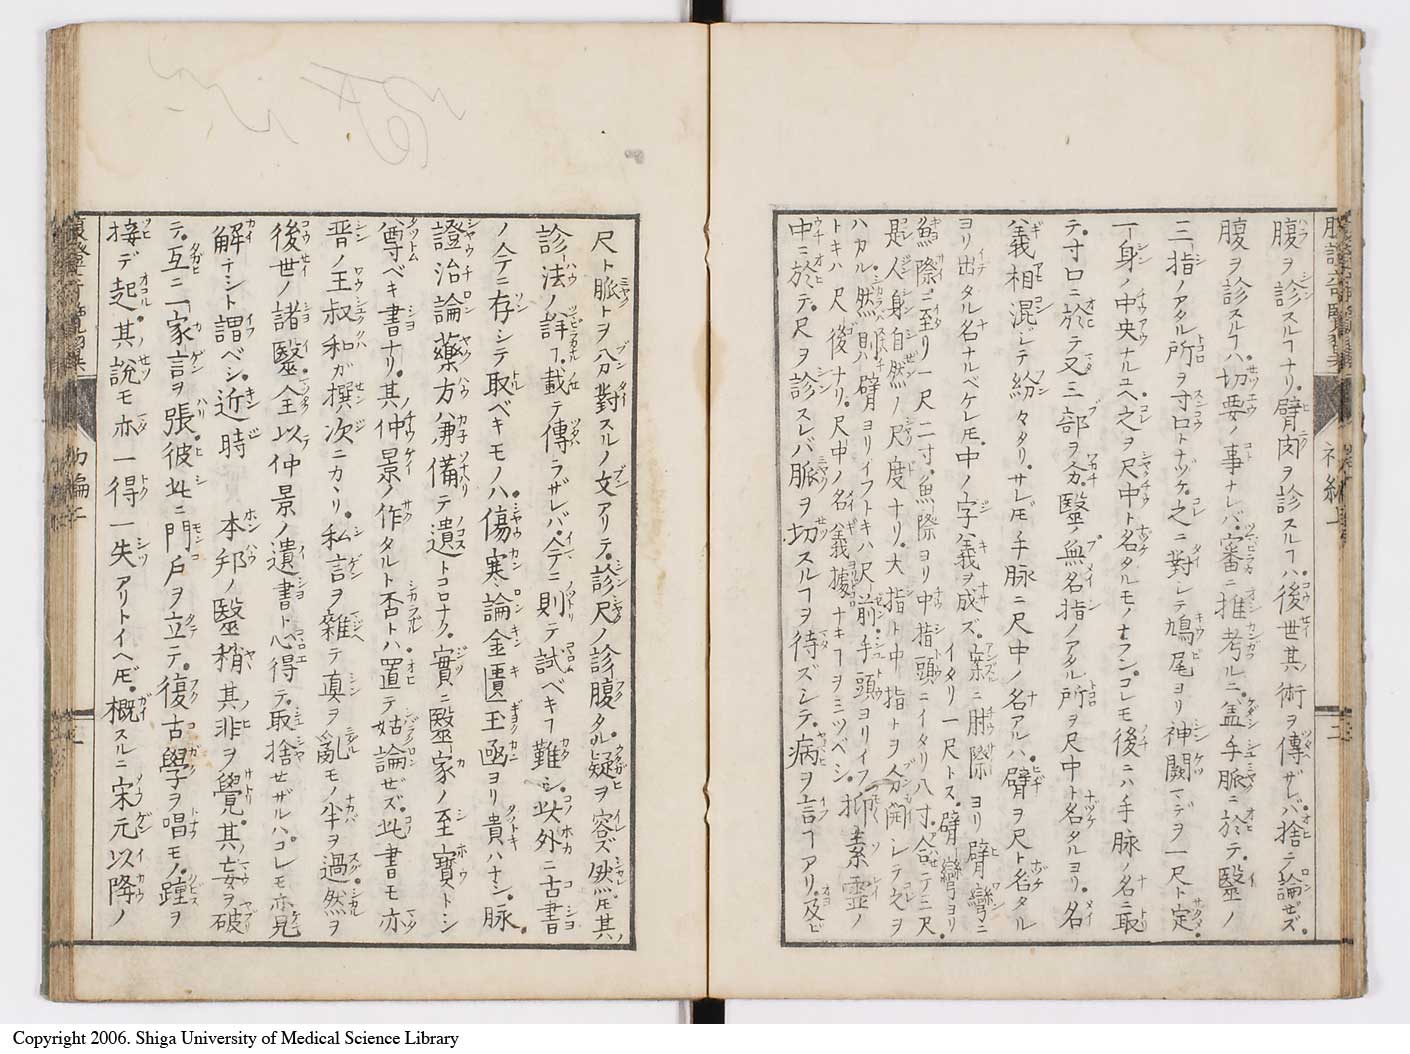 腹ヲ診スルヿナリ。臂肉ヲ診スルヿハ、後世其術ヲ傳ザレバ、捨テ論ゼズ。
腹ヲ診スルハ、切要ノ事ナレバ、審ニ推考ルニ、蓋手脈ニ於テ、醫ノ
三指ノアタル所ヲ寸口トナヅケ、之ニ對シテ鳩尾ヨリ神闕マデヲ一尺ト定
一身ノ中央ナルユヘ、之ヲ尺中ト名タルモノナランコレモ後ニハ手脉ノ名ニ取
テ、寸口ニ於テ又三部ヲ分、醫ノ無名指ノアタル所ヲ尺中ト名タルヨリ、名
義相混ジテ紛々タリ。サレ𪜈手脈ニ尺中ノ名アルハ、臂ヲ尺ト名タル
ヨリ出タル名ナルベケレ𪜈、中ノ字義ヲ成ズ。案ニ肘際ヨリ臂彎ニ
是人身自然ノ尺度ナリ。大指ト中指トヲ分開シテ之ヲ
ハカル。然𪜈臂ヨリイフトキハ尺前、手頭ヨリイフ
トキハ尺後ナリ。尺中ノ名義據ナキヿヲミツベシ。抑素靈ノ
中ニ於テ、尺ヲ診スレバ脈ヲ切スルヿヲ待ズシテ、病ヲ言ヿアリ。及ビ
尺ト脈トヲ八分對スルノ文アリテ、診尺ノ診腹タル疑ヲ容ズ。然𪜈其
診法ノ詳ヿ、載テ傳ラザレバ、今ニ則テ試ベキヿ難シ。此外ニ古書
ノ今ニ存シテ取ベキモノハ、傷寒論金匱玉函ヨリ貴ハナシ。脉
證治論藥方兼備テ遺トコロナク、實ニ醫家ノ至寳トシ
尊ベキ書ナリ。其仲景ノ作タルト否トハ置テ姑論ゼズ。此書モ亦
晋ノ王叔和ガ撰次ニカヽリ、私言ヲ雜テ真ヲ亂モノ半ヲ過。然ヲ
後世ノ諸醫全以仲景ノ遺書ト心得テ、取捨セザルハ、コレモ亦見
解ナシト謂ベシ。近時　本邦ノ醫稍其非ヲ覺、其妄ヲ破
テ、互ニ一家言ヲ張、彼此ニ門戸ヲ立テ、復古學ヲ唱モノ、踵ヲ
接デ起。其説モ亦一得一失アリトイヘ𪜈、概スルニ宋元以降ノ
Copyright 2006. Shiga University of Medical Science Library